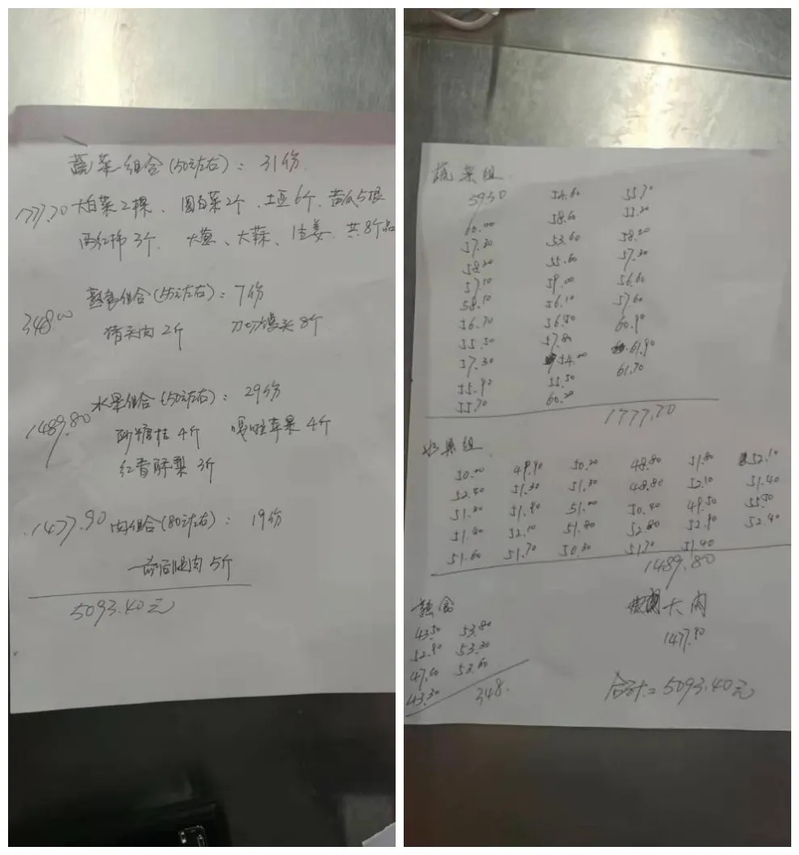 蔬菜组合(50元左右): 31份
1777.70 大白菜2棵、圆白菜2个、土豆6个、黄瓜5根
西红柿3个、大葱、大蒜、生姜、共8个品
熟食组合(55元左右): 7份
348.00
猪头肉2斤 刀切馒头8个
水果组合(50元左右): 29份
1489.80
砂糖桔4斤 嘎啦苹果4斤
红香酥梨3斤
1477.90 肉组合(80元左右): 19份
前后腿肉5斤
5093.40元
蔬菜组
59.50 54.60 55.70
60.00 58.60 55.20
57.30 53.60 58.20
58.20 55.60 57.30
57.10 59.00 56.60
58.10 56.10 57.60
56.70 56.80 60.90
55.50 57.80 61.90
57.30 54.00 61.70
55.90 55.50
55.70 60.20
1777.70
水果组
50.00 49.90 50.20 48.80 51.80 52.10
52.80 51.30 51.80 48.80 52.10 51.40
51.80 51.80 51.00 50.40 49.50 55.50
51.80 52.10 51.80 52.80 52.90 52.40
51.60 51.70 50.30 51.70 51.40
1489.80
熟食 大肉
43.50 53.80
1477.90
52.90 53.30
47.60 53.60
43.30 348.
合计=5093.40元